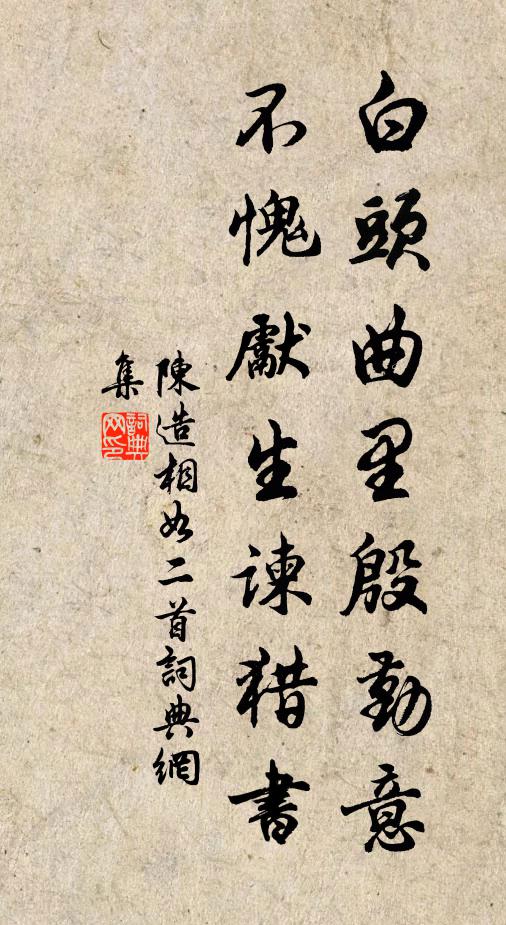 白頭曲里殷勤意
不愧獻生諫猎書
陳造相如二首詞典網
集
詞典网印